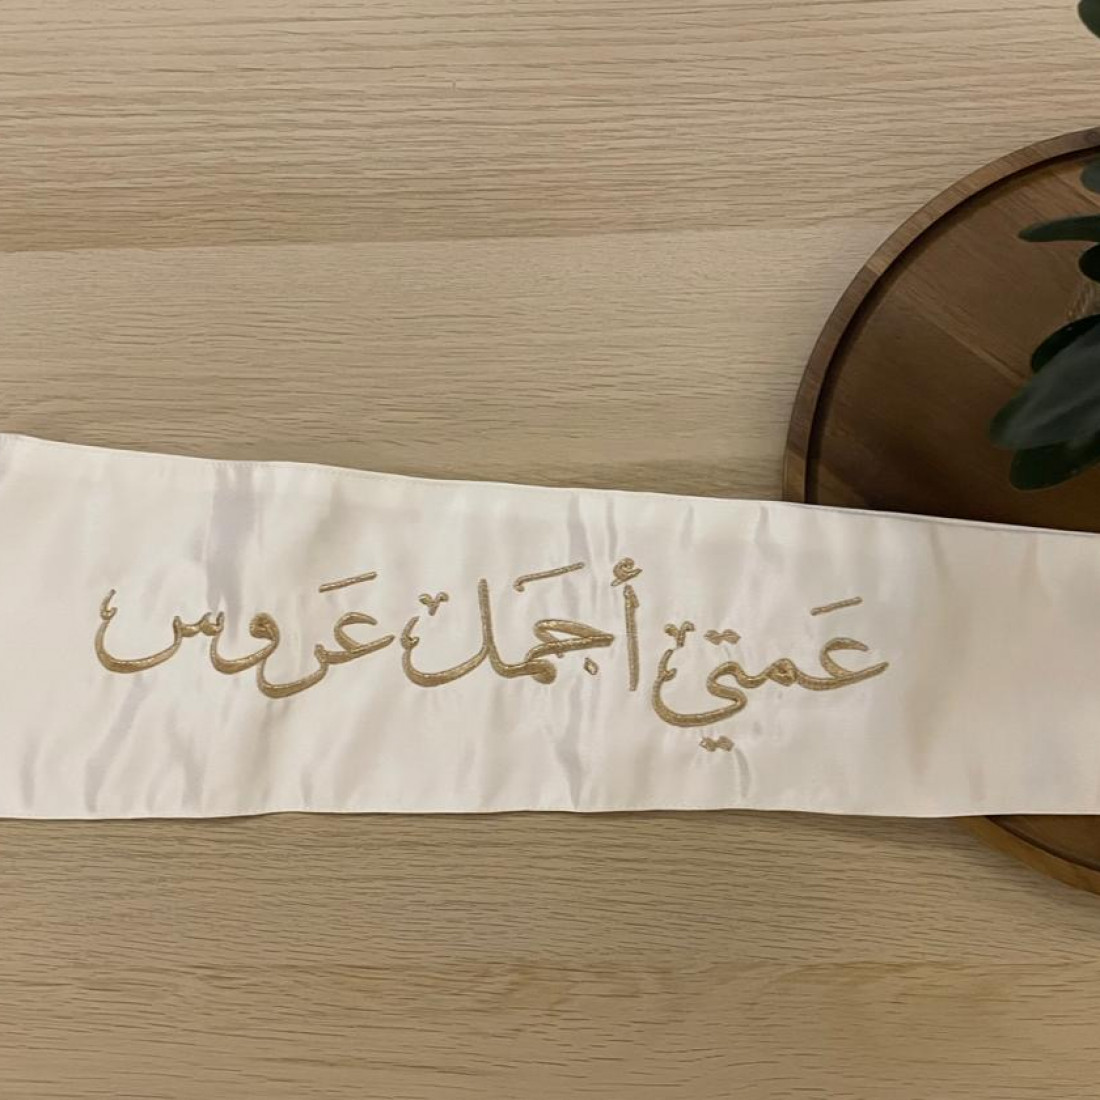 عَمتي أجمَل عَروس